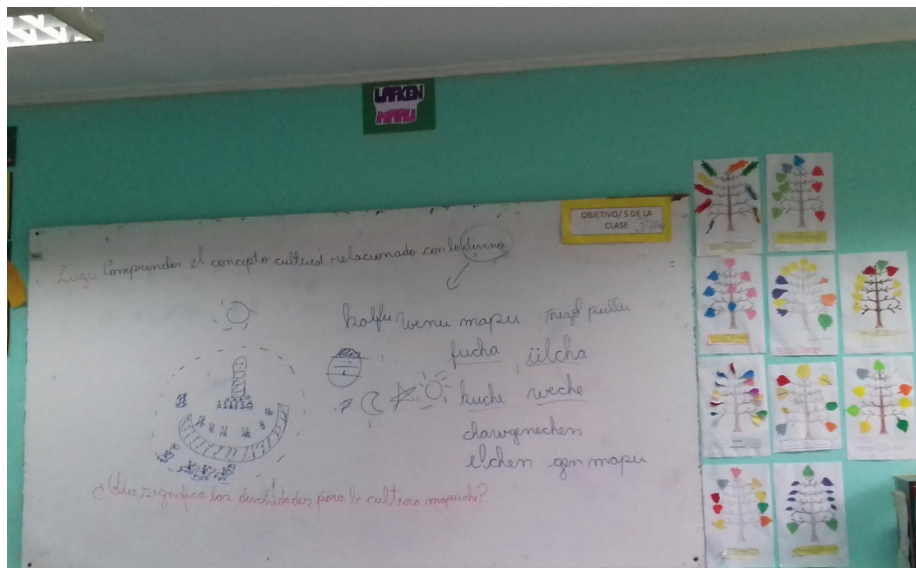 LAFKEN
MAPU
OBJETIVO/S DE LA
CLASE
Zugu Comprender el concepto cultural relacionado con lo divino
kalfu wenu mapu mezo pullu
fucha ülcha
kuche weche
chawgenechen
elchen gen mapu
¿Que significa las divinidades para la cultura mapuche?